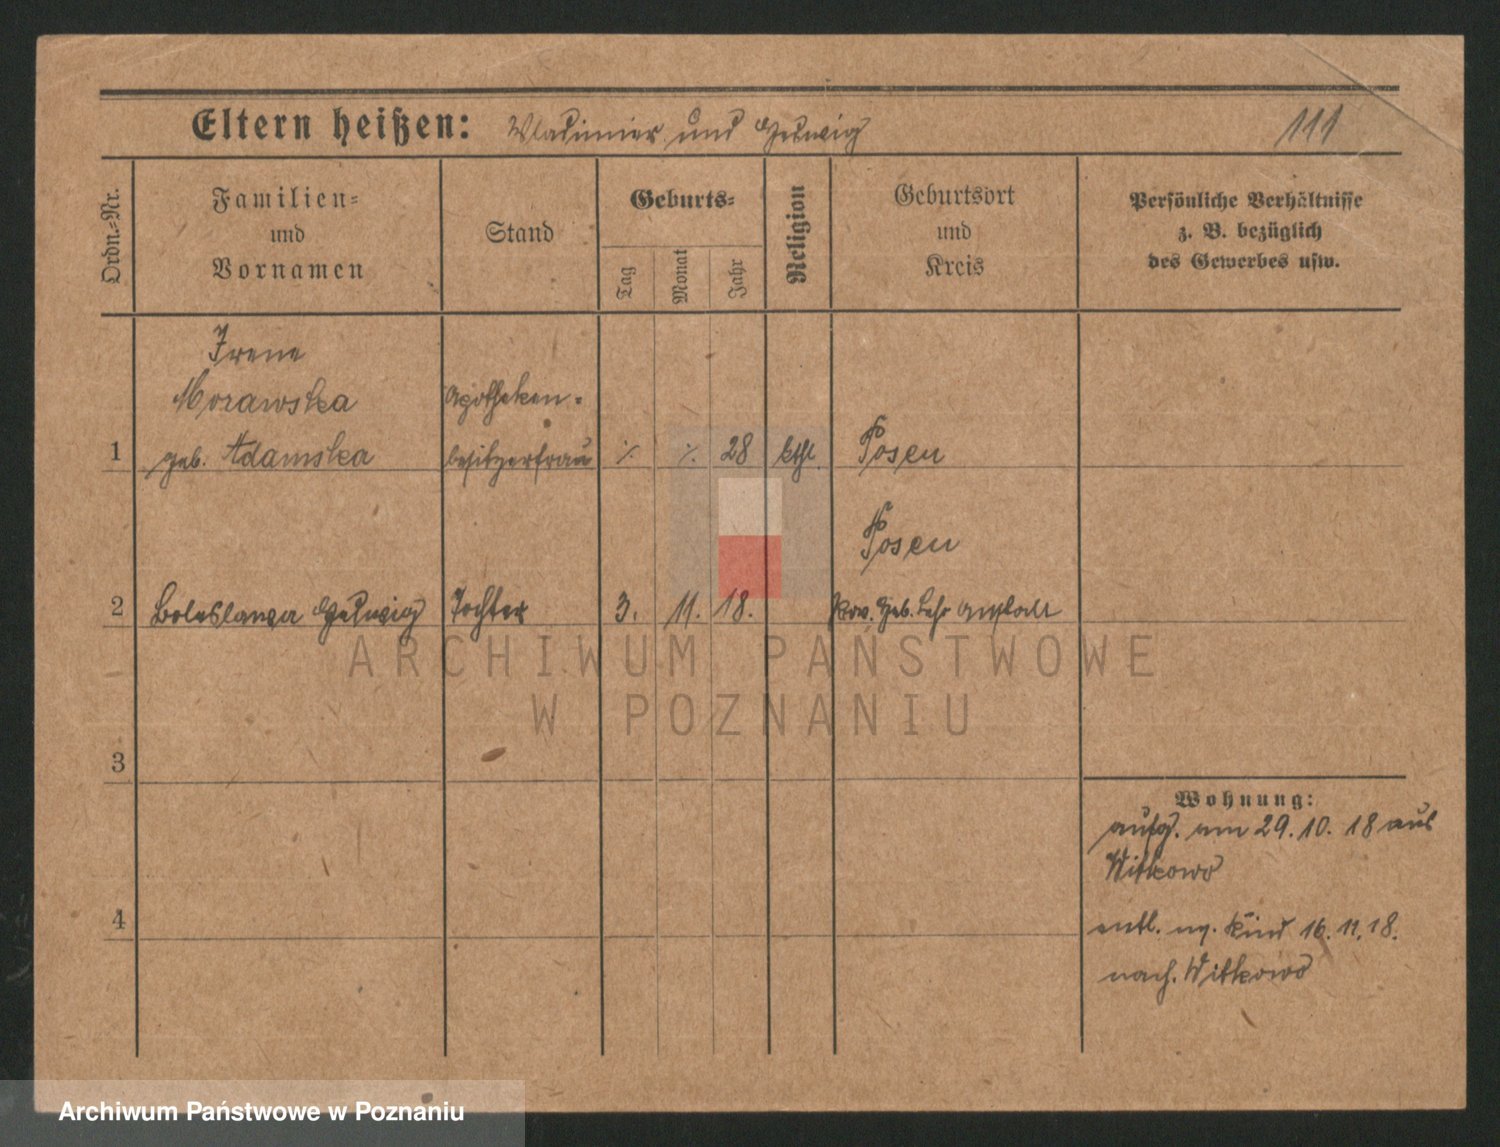 Eltern heißen: Wladimier und Hedwig
111
Ordn.-Nr.
Familien-
und
Vornamen
Stand
Geburts-
Tag
Monat
Jahr
Religion
Geburtsort
und
Kreis
Persönliche Verhältnisse
z. B. bezüglich
des Gewerbes usw.
Irene
Morawska
geb. Adamska
Apotheken-
besitzerfrau
1
٪ ٪ 28 kthl.
Posen
Posen
2 Boleslawa Hedwig Tochter 3. 11. 18. Prov. Heb. Lehr Anstalt
3
4
Wohnung:
aufg. am 29.10.18 aus
Witkowo
entl. m. Kind 16.11.18.
nach Witkowo
ARCHIWUM PAŃSTWOWE
W POZNANIU
Archiwum Państwowe w Poznaniu